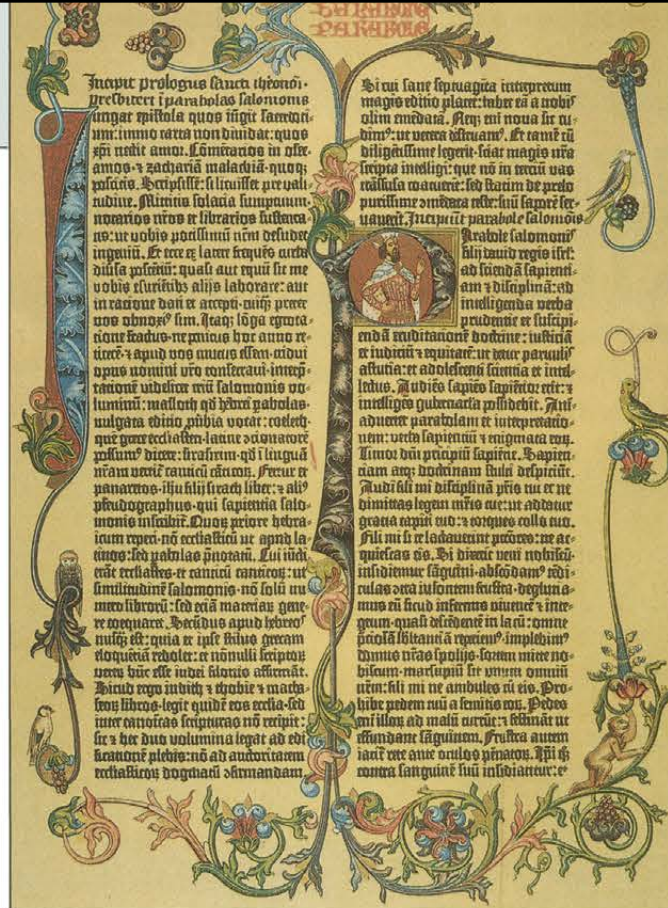 PARABOLE
PARABOLE
Incipit prologus sancti iheronimi
presbiteri i parabolas salomonis
Iungat epistola quos iũgit sacerdoti-
um: immo carta non diuidat: quos
xpi nectit amor. Cõmẽtarios in osee.
amos. ⁊ zachariã malachiã. quoq;
poscitis. Scripsissẽ: si licuisset pre vali-
tudine. Mittitis solacia sumptuum.
notarios nr̃os et librarios sustenta-
tis: ut uobis potissimũ nr̃m desudet
ingeniũ. Et ecce ex latere frequẽs turba
diũsa poscẽtiũ: quasi aut equũ sit me
vobis esuriẽtib; alijs laborare: aut
in racione dati et accepti. cuiq̃; preter
vos obnoxi⁹ sim. Itaq; lõga egrota-
cione fractus. ne penitus hoc anno re-
ticerẽ. ⁊ apud vos mutus essem. tridui
opus nomini vr̃o consecraui. interp̃-
tationẽ videlicet triũ salomonis vo-
luminũ: masloth qđ hebrei pabolas.
vulgata editio ꝓubia vocat: coeleth.
quẽ grece ecclesiasten. latine ↄcionatorẽ
possum⁹ dicere: sirasirim. qđ i linguã
nr̃am vertit̃ canticũ cãticoꝝ. Fertur et
panaretos. ihu filij sirach liber: ⁊ ali⁹
pseudographus. qui sapientia salo-
monis inscribit̃. Quoꝝ priore hebra-
icum reperi. nõ ecclesiasticũ ut apud la-
tinos: sed pabolas p̃notatũ. Cui iũcti
erãt ecclesiastes. et canticũ canticoꝝ: ut
similitudinẽ salomonis. nõ solũ nu-
mero librorũ: sed eciã materiaꝝ gene-
re coequaret. Secũdus apud hebreos
nusq̃ est: quia et ipse stilus grecam
eloquẽtiã redolet: et nõnulli scriptoꝝ
veteꝝ hũc esse iudei filonis affirmãt.
Sicud ergo iudith ⁊ thobie ⁊ macha-
beoꝝ libros. legit quidẽ eos ecclesia. sed
inter canonicas scripturas nõ recipit:
sic ⁊ hec duo volumina legat ad edi-
ficationẽ plebis: nõ ad auctoritatem
ecclesiasticoꝝ dogmatũ ↄfirmandam.
Si cui sane septuaginta interpretum
magis editio placet: habet eã a nobis
olim emẽdatã. Neq; eni nova sic cu-
dim⁹: ut vetera destruam⁹. Et tamẽ cũ
diligẽtissime legerit. sciat magis nr̃a
scripta intelligi: que nõ in terciũ vas
trãsfusa coacuerĩt: sed statim de prelo
purissime ↄmẽdata teste: suũ saporẽ ser-
vauerĩt. Incipiũt parabole salomõis
Parabole salomonis
filij dauid regis isrl̃:
ad sciendã sapienti-
am ⁊ disciplinã: ad
intelligenda verba
prudentie et suscipi-
endã eruditationẽ doctrine: iusticiã
et iudiciũ ⁊ equitatẽ: ut detur paruulis
astutia: et adolescenti scientia et intel-
lectus. Audiẽs sapiẽs sapiẽtior erit: ⁊
intelligẽs gubernacla possidebit. Ani-
aduertet parabolam et interpretatio-
nem: verba sapientiũ ⁊ enigmata eoꝝ.
Timor dñi principiũ sapiẽtie. Sapien-
ciam atq; doctrinam stulti despiciũt.
Audi fili mi disciplinã pr̃is tui et ne
dimittas legem mr̃is tue: ut addatur
gratia capiti tuo: ⁊ torques collo tuo.
Fili mi si te lactauerint pctõres: ne ac-
quiescas eis. Si dixerĩt veni nobiscũ.
insidiemur sãguini. abscõdam⁹ tẽdi-
culas ↄtra insontem frustra. deglutia-
mus eũ sicud infernus viuentẽ ⁊ inte-
grum. quasi descẽdentẽ in lacũ: omnẽ
p̃ciosã sbstantiã repiem⁹. implebim⁹
domus nr̃as spolijs. sortem mitte no-
biscum. marsupiũ sit vnum omniũ
nr̃m: fili mi ne ambules cũ eis. Pro-
hibe pedem tuũ a semitis eoꝝ. Pedes
eni illoꝝ ad malũ currũt: ⁊ festinãt ut
effundant sãguinem. Frustra autem
iacit̃ rete ante oculos pẽnatoꝝ. Ipi q̃;
contra sanguinẽ suũ insidiantur: et